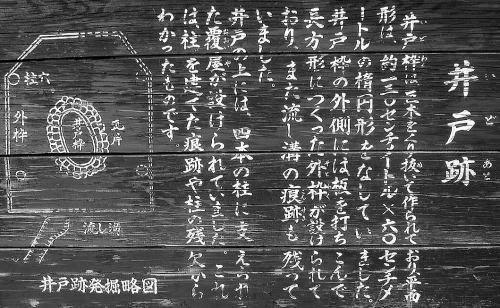 井戸跡
いどあと
井戸枠は木をくり抜いて作られており、平面
形は、約一三〇センチメートル×六〇センチメ
ートルの楕円形をなしていました。
井戸枠の外側には板を打ちこんで
長方形につくった外枠が設けられて
おり、また流し溝の痕跡も残って
いました。
井戸の上には、四本の柱に支えられ
た覆屋が設けられていました。これ
は柱を建てた痕跡や柱の残欠から
わかったものです。
柱穴
外枠
井戸枠
瓦片
流し溝
井戸跡発掘略図